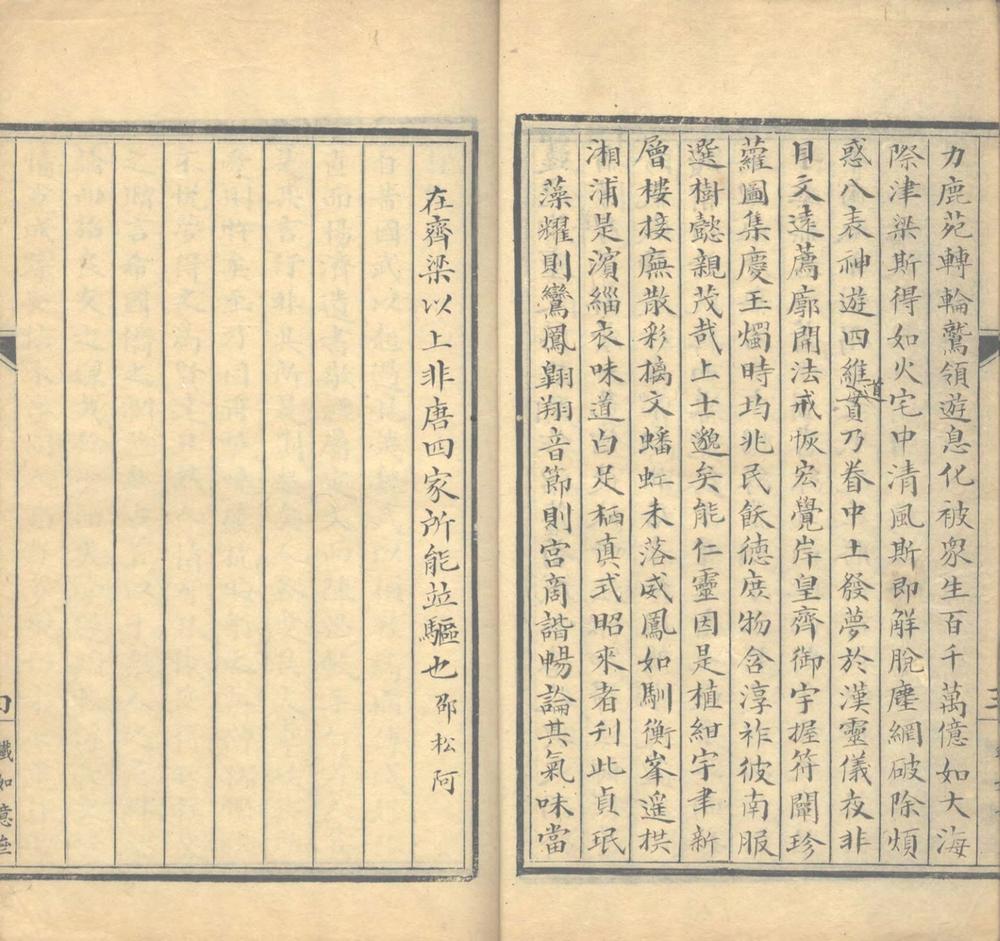 力鹿苑轉輪鷲領遊息化被眾生百千萬億如大海
際津梁斯得如火宅中清風斯即解脫塵網破除煩
惑八表神遊四維道實乃眷中土發夢於漢靈儀夜非
目文遠薦廓開法戒恢宏覺岸皇齊御宇握符闡珍
蘿圖集慶玉燭時均兆民飫德庶物含淳祚彼南服
選樹懿親茂哉上士邈矣能仁靈因是植紺宇聿新
層樓接廡散彩摛文蟠虹未落威鳳如馴衡峯遥拱
湘浦是濱緇衣味道白足栖真式昭來者刊此貞珉
藻耀則鸞鳳翺翔音節則宮商諧暢論其氣味當
在齊梁以上非唐四家所能並驅也 邵松阿
鐵如意